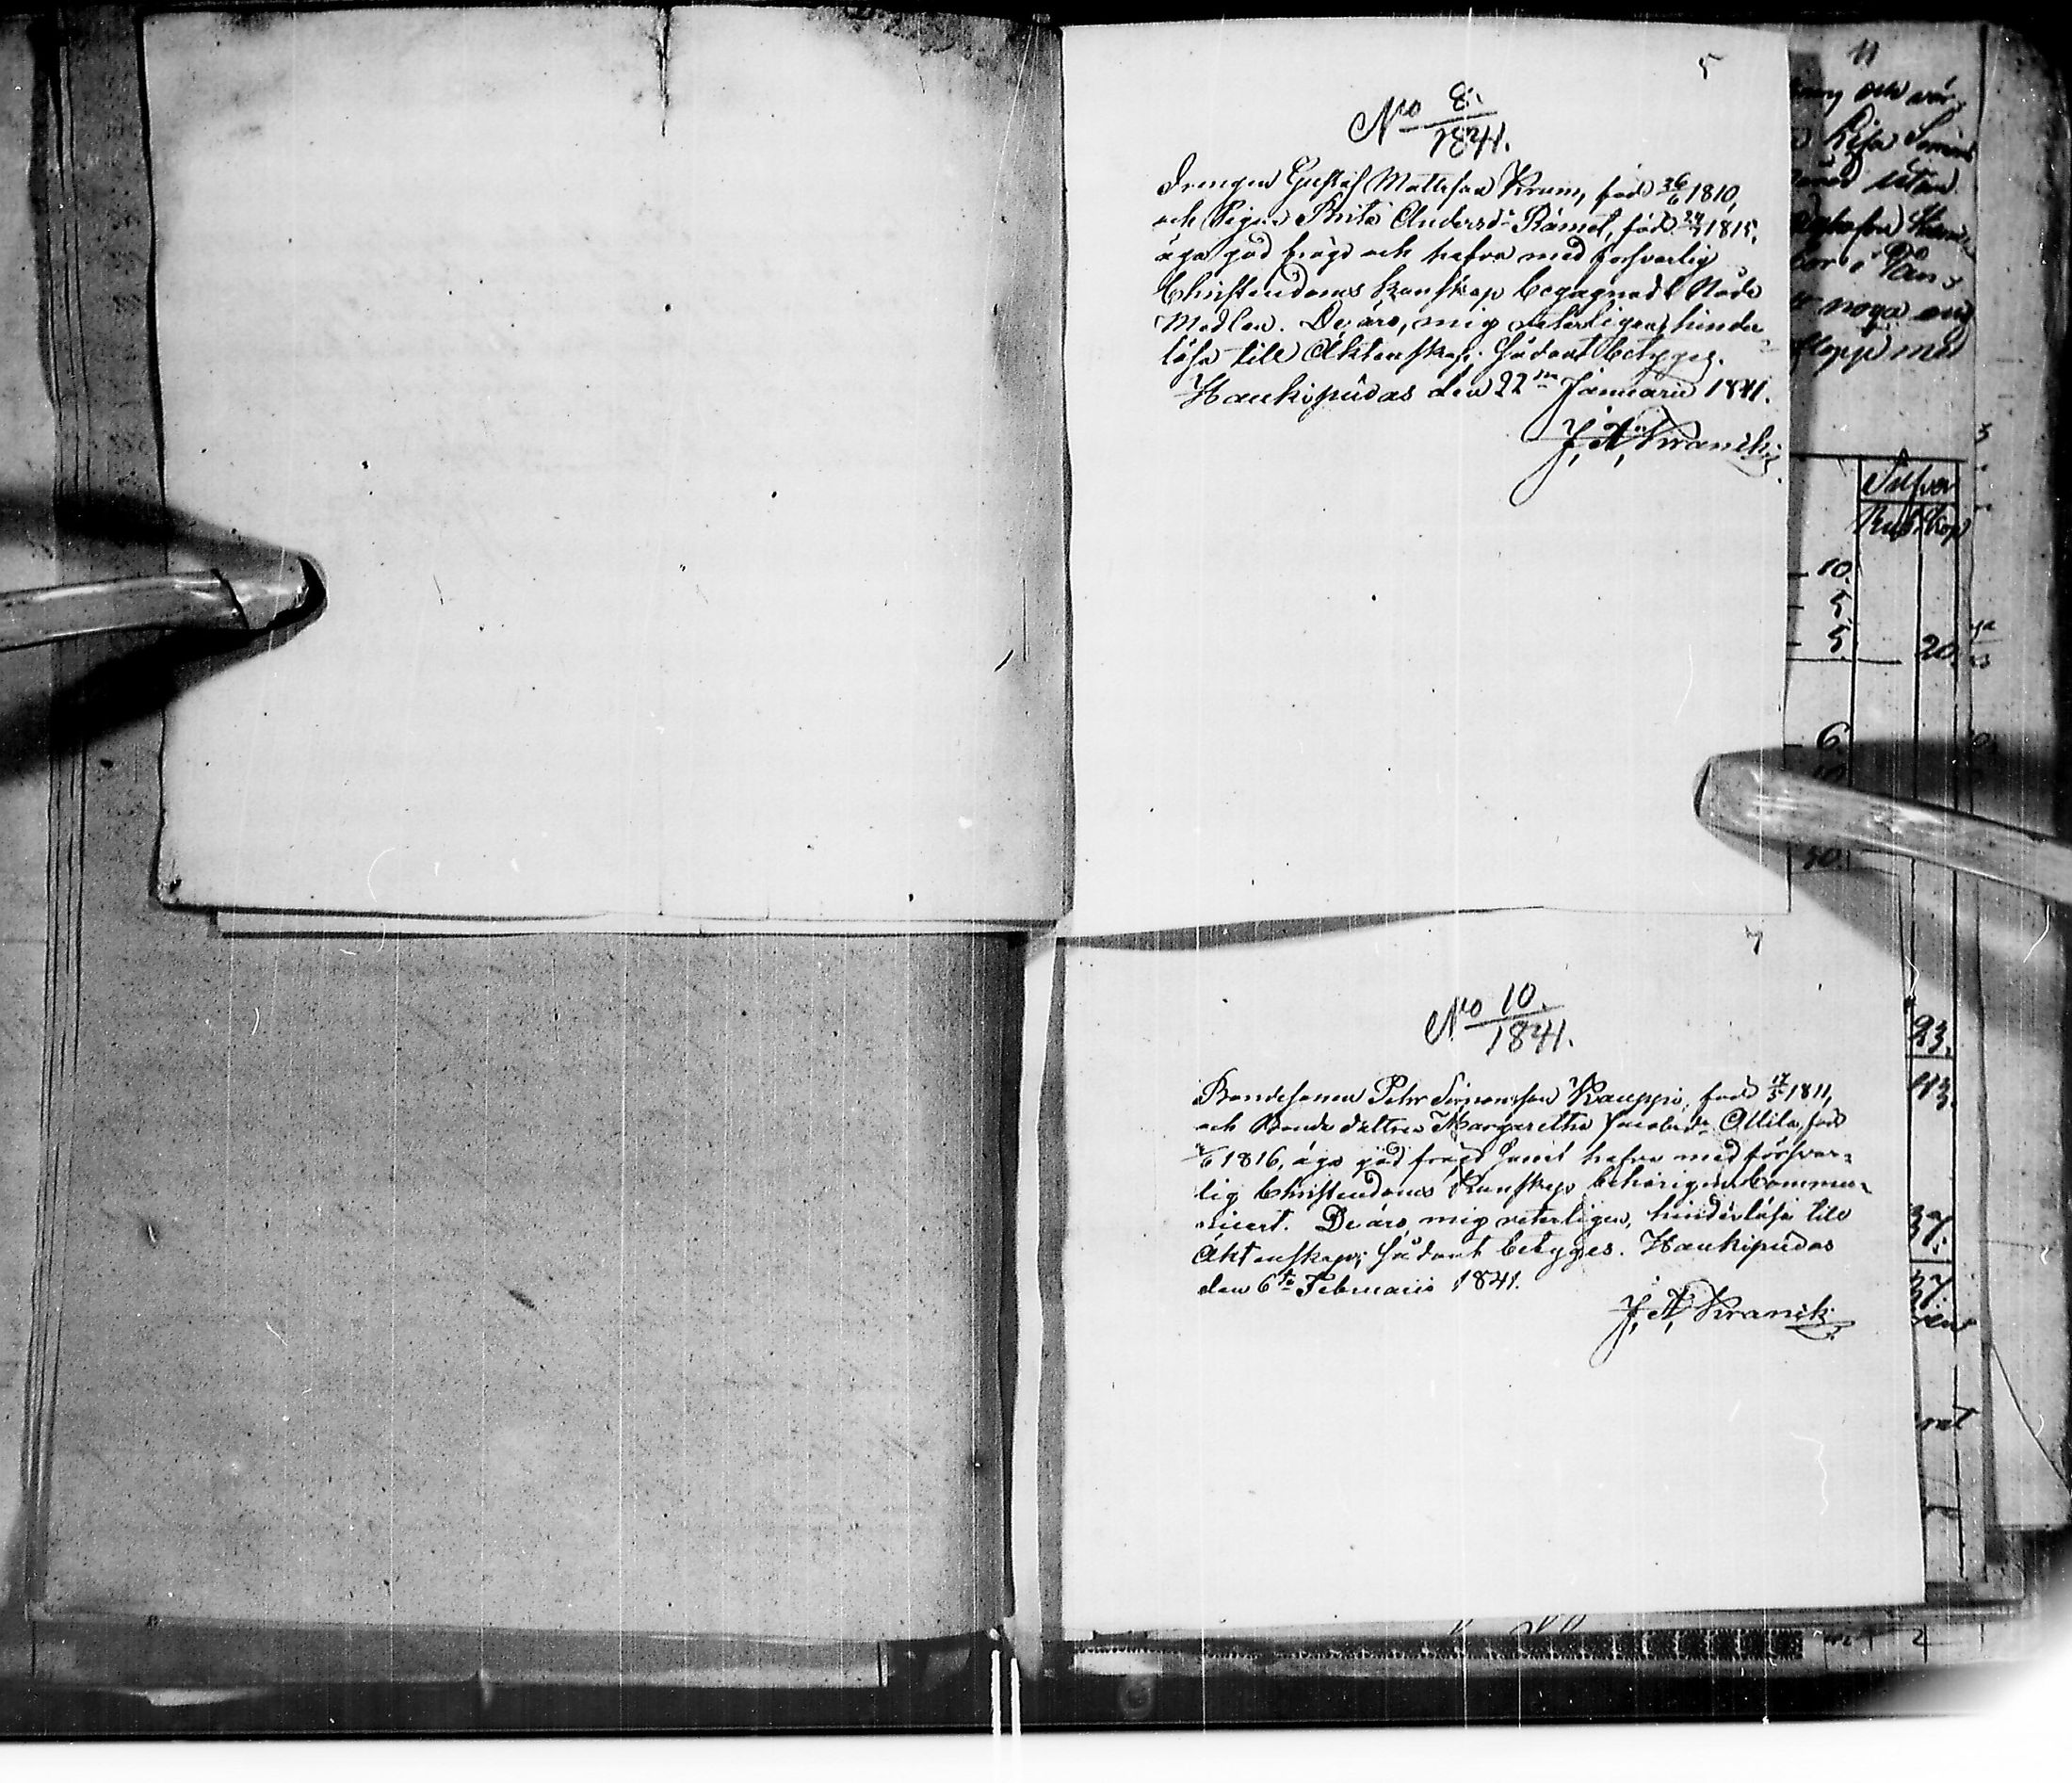 5
No 8./1841.
Drengen Gustaf Mattsson Krum, född 26/6 1810,
och Pigan Brita Andersdr Rämet, född 1815,
äga god frägd och hafva med försvarlig
Christendoms kunskap begagnadt Nåde
Medlen. De äro, mig veterligen, hinder
lösa till Äktenskap; sådant betyges.
Haukipudas den 22dra Januarii 1841.
J. A. Kranck
7
No 10./1841.
Bondesonen Pehr Simonsson Kauppi, född 17/5 1811,
och Bonde dottren Margaretha Jacobsdr Ollila, född
/6 1816, äga god frägd samt hafva med försvar=
lig Christendoms Kunskap behörigen Commu=
nicert. De äro, mig veterligen, hinderlösa till
Äktenskap; sådant betyges. Haukipudas
den 6te Februarii 1841.
J. A. Kranck
11
och
Lisa
utan
noga
med
Silfver
Rub Kop
10.
5.
5. 20.
6
10.
23.
43.
37.
37.